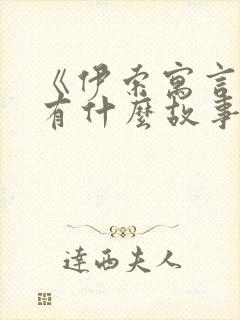 《伊索寓言
有什麼故事
達西夫人